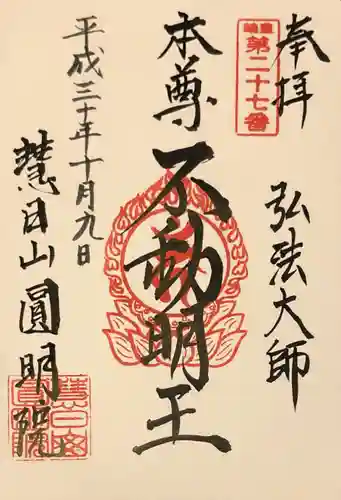 奉拝
弘法大師
第二十七番
本尊
不動明王
平成三十年十月九日
慧日山圓明院